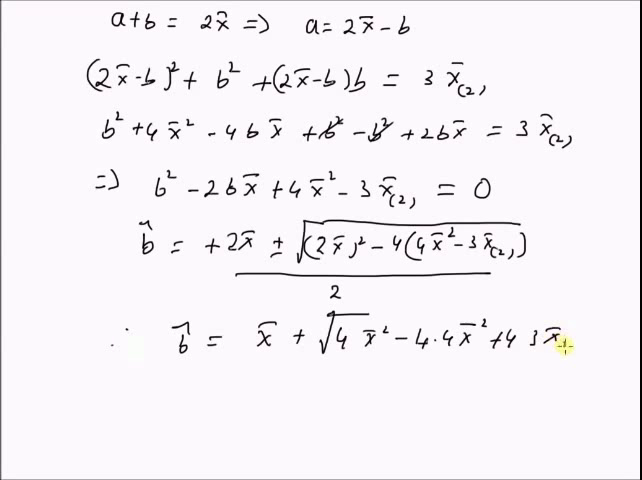 a+b = 2x̄ => a= 2x̄ - b
(2x̄-b)² + b² + (2x̄-b)b = 3 x̄(2)
b² + 4x̄² - 4bx̄ + b² - b² + 2bx̄ = 3 x̄(2)
=> b² - 2bx̄ + 4x̄² - 3x̄(2) = 0
b̂ = +2x̄ ± √((2x̄)² - 4(4x̄² - 3x̄(2)))
2
∴ b̂ = x̄ + √4 x̄² - 4.4x̄² + 4 3x̄